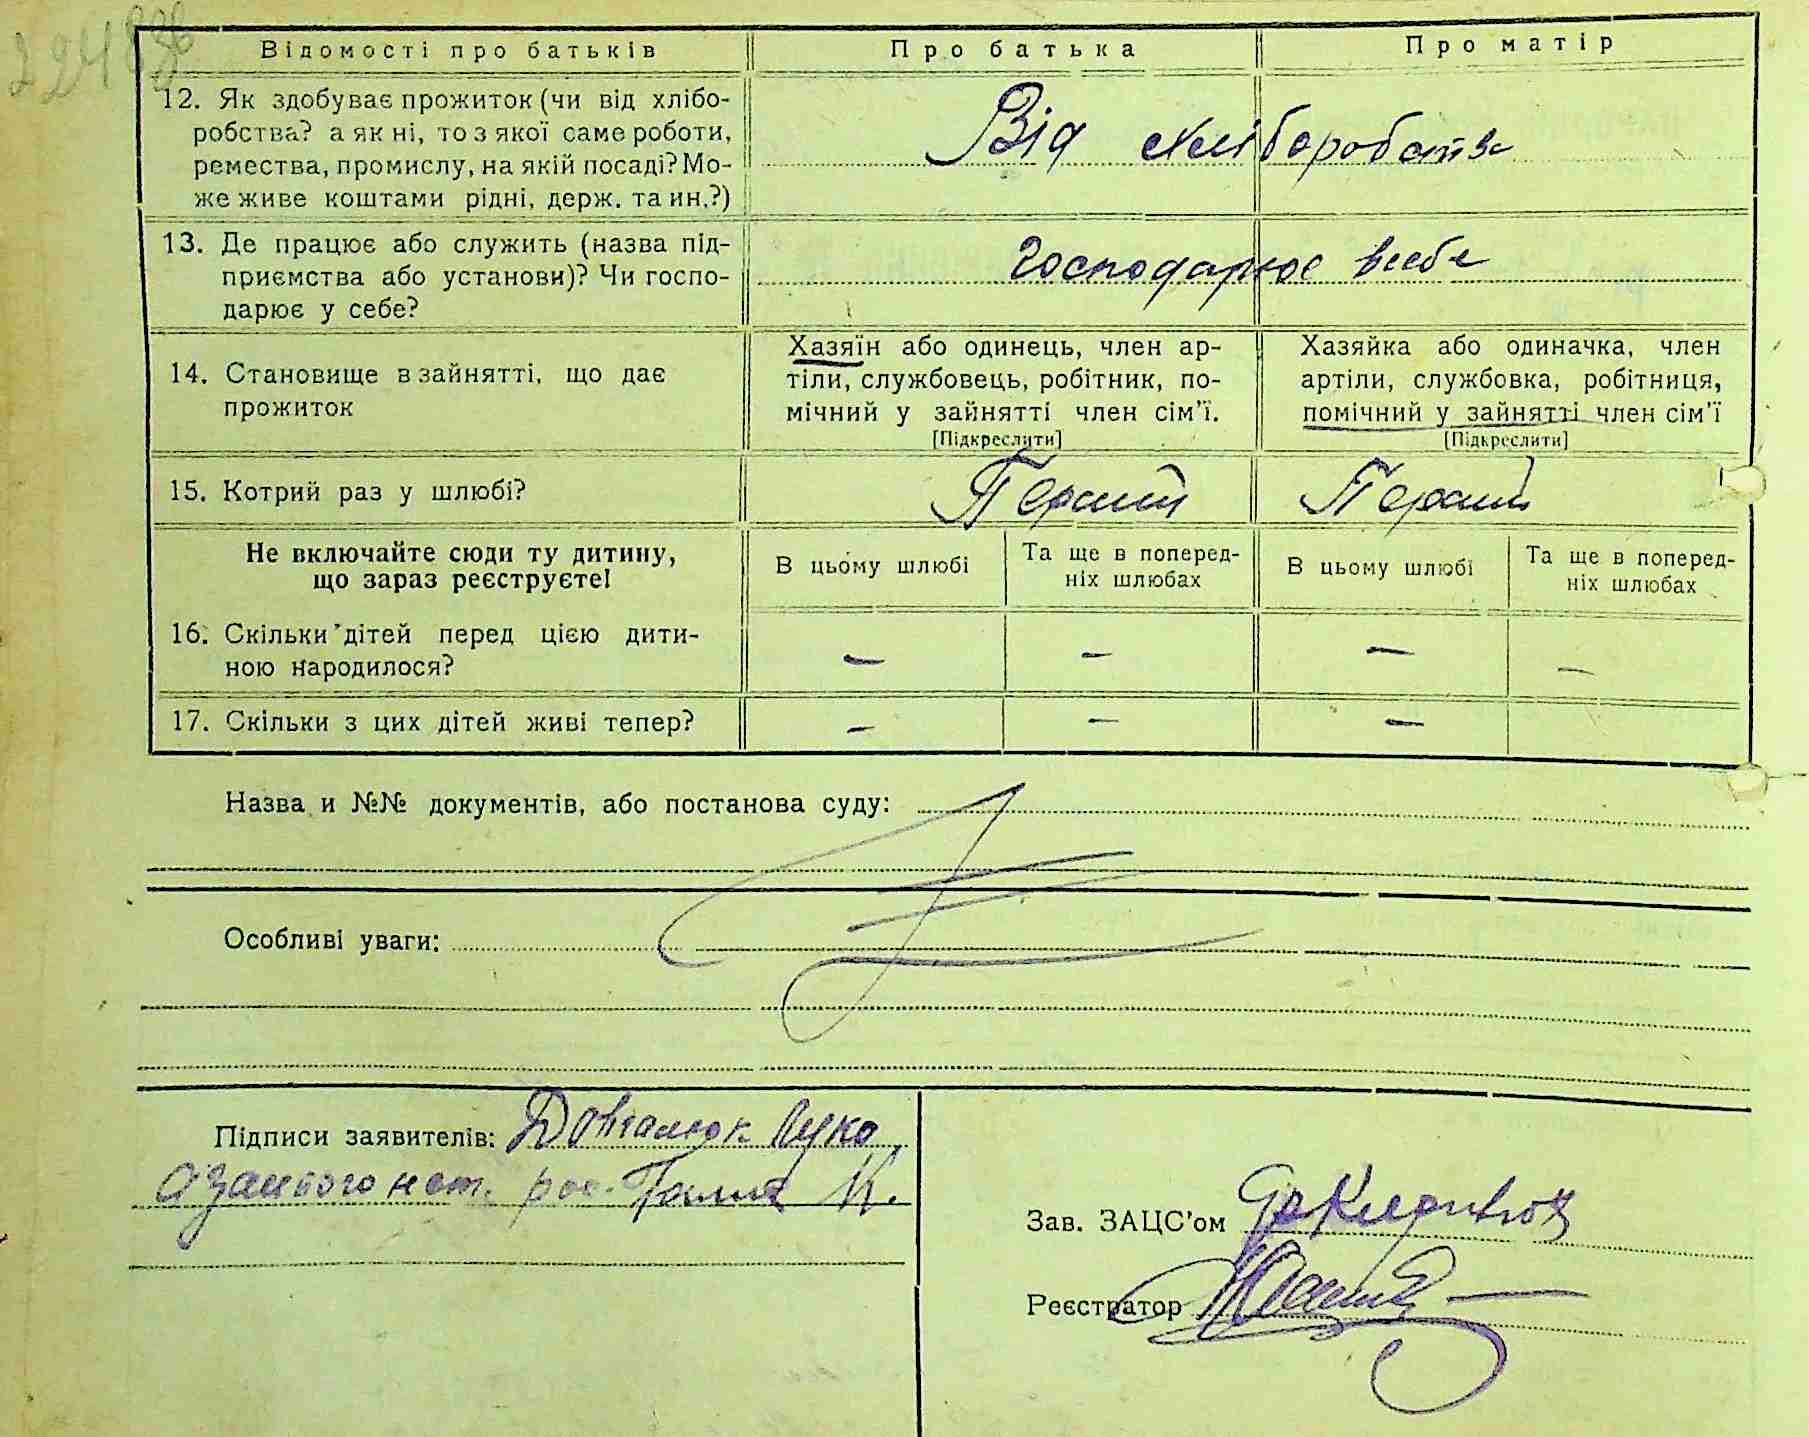 Відомості про батьків
Про батька
Про матір
12. Як здобуває прожиток (чи від хлібо-
робства? а як ні, то з якої саме роботи,
ремества, промислу, на якій посаді? Мо-
же живе коштами рідні, держ. та ин.?)
Від хліборобства
13. Де працює або служить (назва під-
приємства або установи)? Чи госпо-
дарює у себе?
Господарює в себе
14. Становище в зайнятті, що дає
прожиток
Хазяїн або одинець, член ар-
тіли, службовець, робітник, по-
мічний у зайнятті член сім'ї.
[Підкреслити]
Хазяйка або одиначка, член
артіли, службовка, робітниця,
помічний у зайнятті член сім'ї
[Підкреслити]
15. Котрий раз у шлюбі?
Перший
Перший
Не включайте сюди ту дитину,
що зараз реєструєте!
В цьому шлюбі
Та ще в поперед-
ніх шлюбах
В цьому шлюбі
Та ще в поперед-
ніх шлюбах
16. Скільки дітей перед цією дити-
ною народилося?
–
–
–
–
17. Скільки з цих дітей живі тепер?
–
–
–
Назва и №№ документів, або постанова суду:
Особливі уваги:
Підписи заявителів: Довгалюк Луко
а за нього нет. рос. К.
Зав. ЗАЦС'ом
Реєстратор